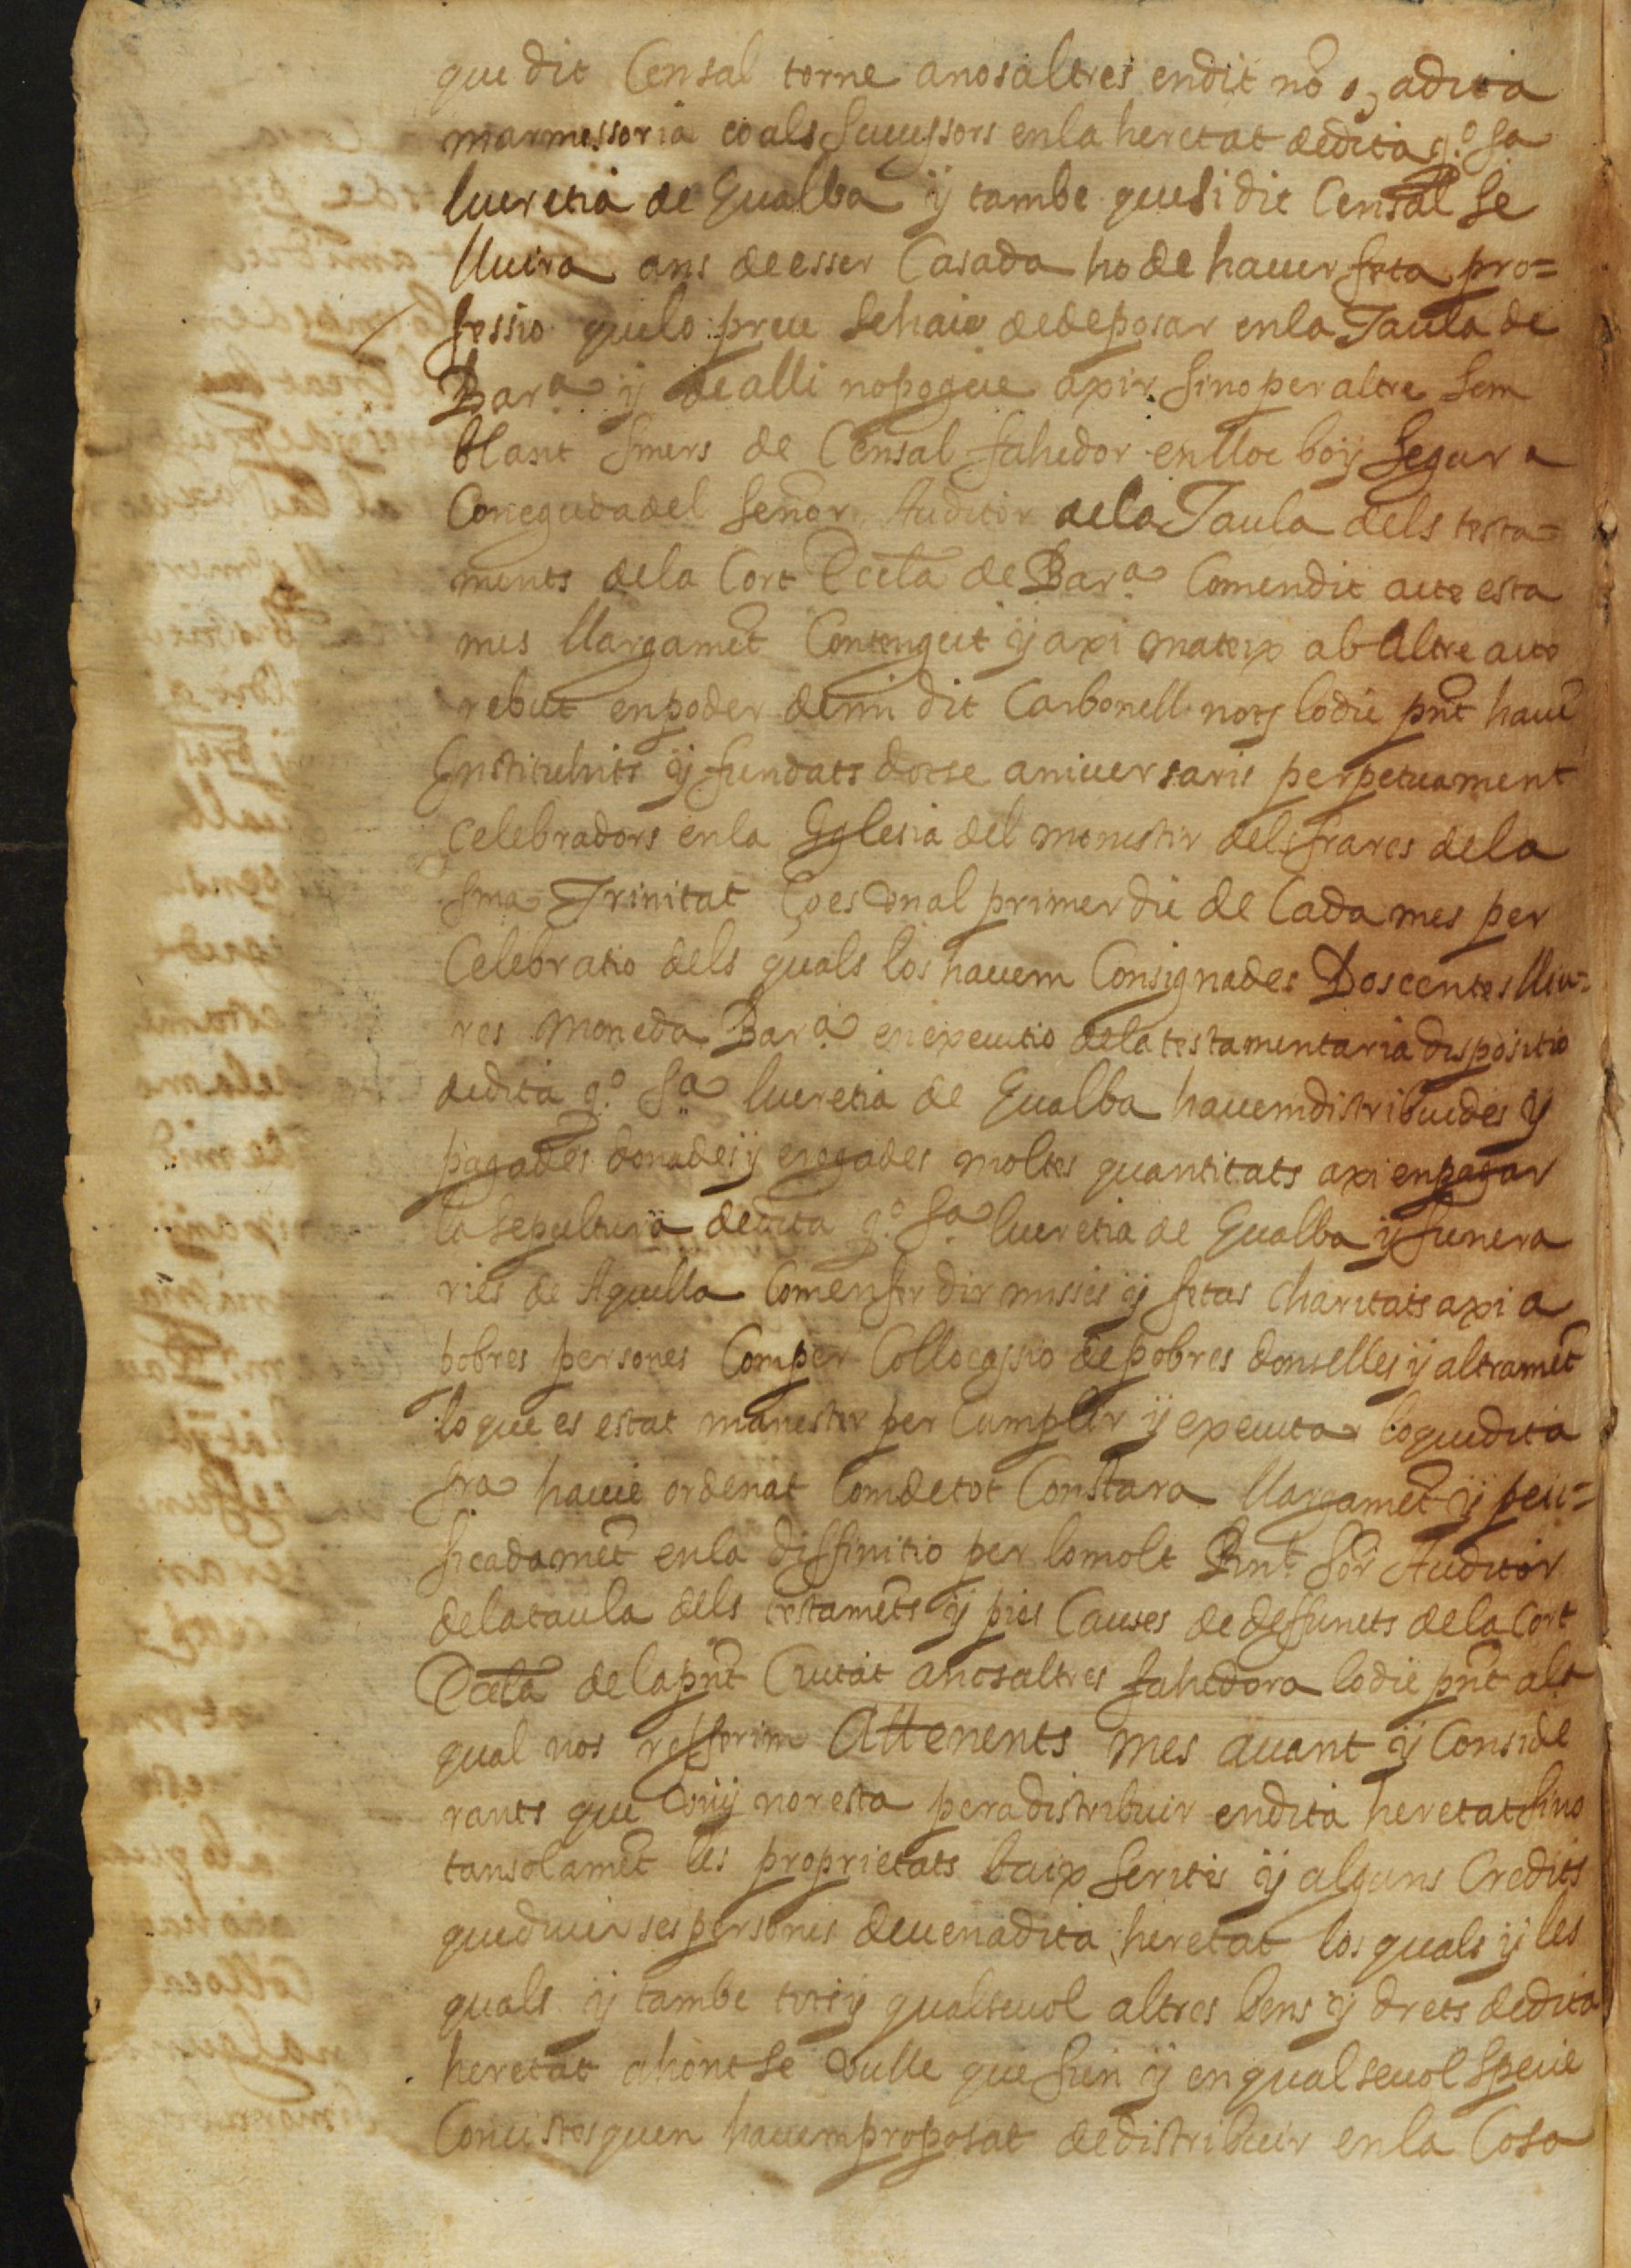 que dit Censal torne anosaltres endit nõ o, adita
marmessoria o als Successors enla heretat dedita q.º S.ª
lucretia de Gualba ÿ tambe quesi dit Censal Se
lluira ans deesser Casada ho de hauer feta pro=
fessio quelo preu Sehaie dedeposar enla Taula de
Bar.ª ÿ de alli nopogue axir Sino per altre Sem
blant Smers de Censal fahedor en lloc bo ÿ Segur a
Coneguda del Señor Auditor dela Taula dels testa=
ments dela Cort Eccl̃a de Bar.ª Comendit acte esta
mes llargamẽt Contengut ÿ axi mateix ab Altre acte
rebut enpoder demi dit Carbonell notᶾ lodie pñt hauẽ
Instituhits ÿ fundats dotse aniuersaris perpetuament
celebradors enla Esglesia del monestir dels frares dela
Sma Trinitat Çoes Vnal primer die de Cada mes per
Celebratio dels quals los hauem Consignades Doscentes lliu=
res Moneda Bar.ª enexecutio dela testamentaria dispositio
dedita q.º S.ª lucretia de Gualba hauemdistribuides ÿ
pagades donades ÿ erogades moltes quantitats axi enpagar
la Sepultura dedita q.º S.ª lucretia de Gualba ÿ funera
ries de Aquella Comenfer dir misses ÿ fetas Charitats axi a
pobres persones Comper Collocassio de pobres donselles ÿ altramẽt
lo que es estat manester per Cumplir ÿ executar loquedita
Sra hauie ordenat Comdetot Constara llargamẽt ÿ peci=
ficadamẽt enla diffinitio per lomolt Rnt. Sõr Auditor
delataula dels testamẽts ÿ pies Causes dedeffuncts dela Cort
Eccl̃a delapñt Ciutat anosaltres fahedora lodie pñt als
qual nos refferim Attenents mes auant ÿ Conside
rants que Vuÿ noresta peradistribuir endita heretat Sino
tansolamẽt les proprietats baix Scrites ÿ alguns Credits
quediuerses persones deuenadita heretat los quals ÿ les
quals ÿ tambe tots ÿ qualseuol altres bens ÿ drets dedita
heretat ahont Se Vulle que Sien ÿ en qual seuol Specie
Concistesquen hauemproposat dedistribuir enla Cosa